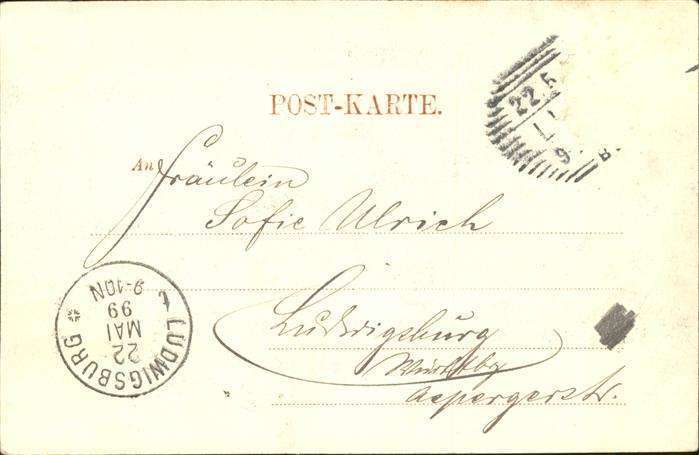 POST-KARTE.
22.5
An Fräulein
Sofie Ulrich
Ludwigsburg
Württbg
Aspergerstr.
LUDWIGSBURG
22
MAI
99
9-10N